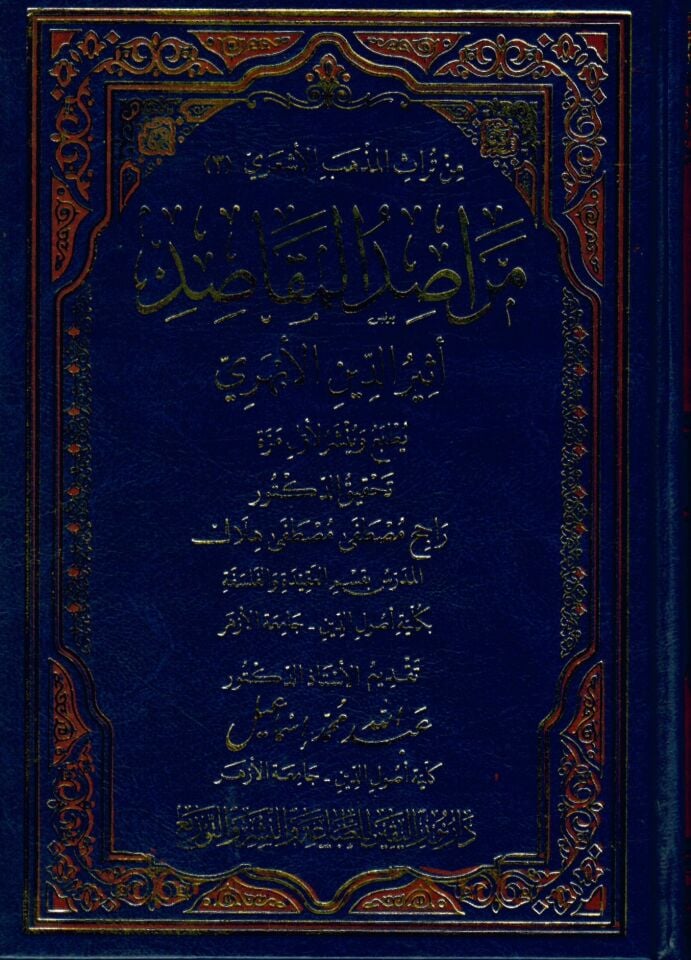 مِنْ تُرَاثِ المَذْهَبِ الأَشْعَرِيّ (٣)
مَرَاصِدُ المَقَاصِدِ
أَثِيرُ الدِّينِ الأَبْهَرِيّ
يُطْبَعُ وَيُنْشَرُ لأَوَّلِ مَرَّة
تَحْقِيقُ الدُّكْتُور
رَاجِح مُصْطَفَى مُصْطَفَى هِلَال
المُدَرِّسِ بِقِسْمِ العَقِيدَةِ وَالفَلْسَفَةِ
بِكُلِّيَّةِ أُصُولِ الدِّينِ - جَامِعَة الأَزْهَر
تَقْدِيمُ الأُسْتَاذِ الدُّكْتُور
محمد إسماعيل
كُلِّيَّة أُصُولِ الدِّينِ - جَامِعَة الأَزْهَر
دَار نُور اليَقِين لِلطِّبَاعَةِ وَالنَّشْرِ وَالتَّوْزِيع